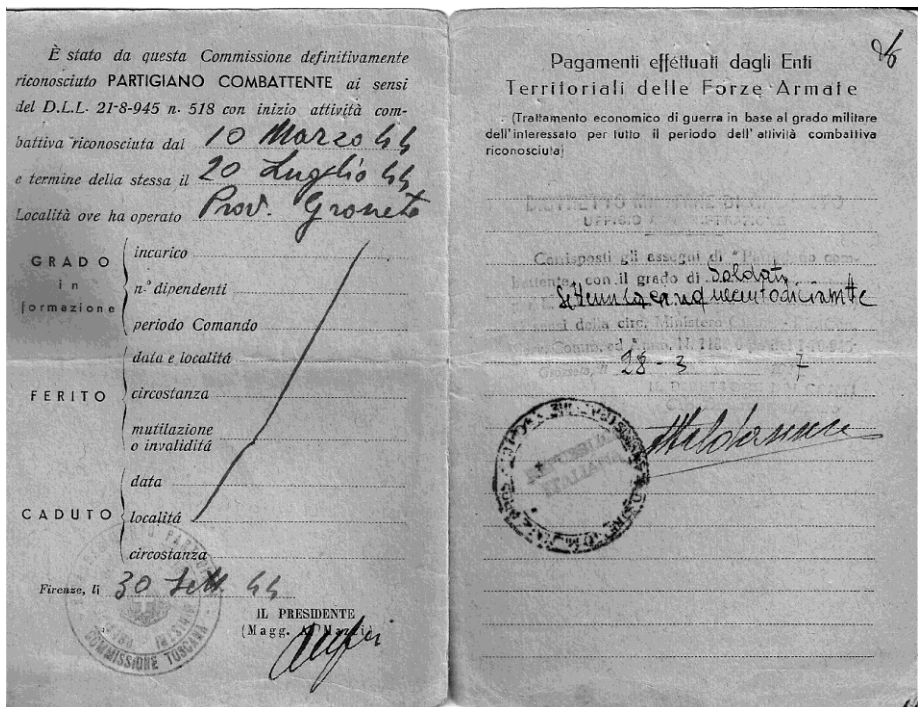 È stato da questa Commissione definitivamente
riconosciuto PARTIGIANO COMBATTENTE ai sensi
del D.L.L. 21-8-945 n. 518 con inizio attività com-
battiva riconosciuta dal 10 Marzo 44
e termine della stessa il 20 Luglio 44
Località ove ha operato Prov. Grosseto
GRADO
in
formazione
incarico
n.° dipendenti
periodo Comando
FERITO
data e località
circostanza
mutilazione
o invalidità
CADUTO
data
località
circostanza
Firenze, li 30 Sett. 44
IL PRESIDENTE
(Magg.
COMMISSIONE TOSCANA
Pagamenti effettuati dagli Enti
Territoriali delle Forze Armate
(Trattamento economico di guerra in base al grado militare
dell'interessato per tutto il periodo dell'attività combattiva
riconosciuta)
Corrisposti gli assegni di "Partigiano com-
battente" con il grado di Soldato
28-3 7
REPUBBLICA
ITALIANA